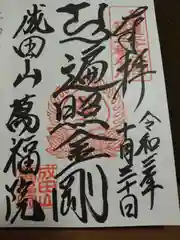 奉拝
令和三年
十月三十日
遍照金剛
成田山 萬福院
成田山